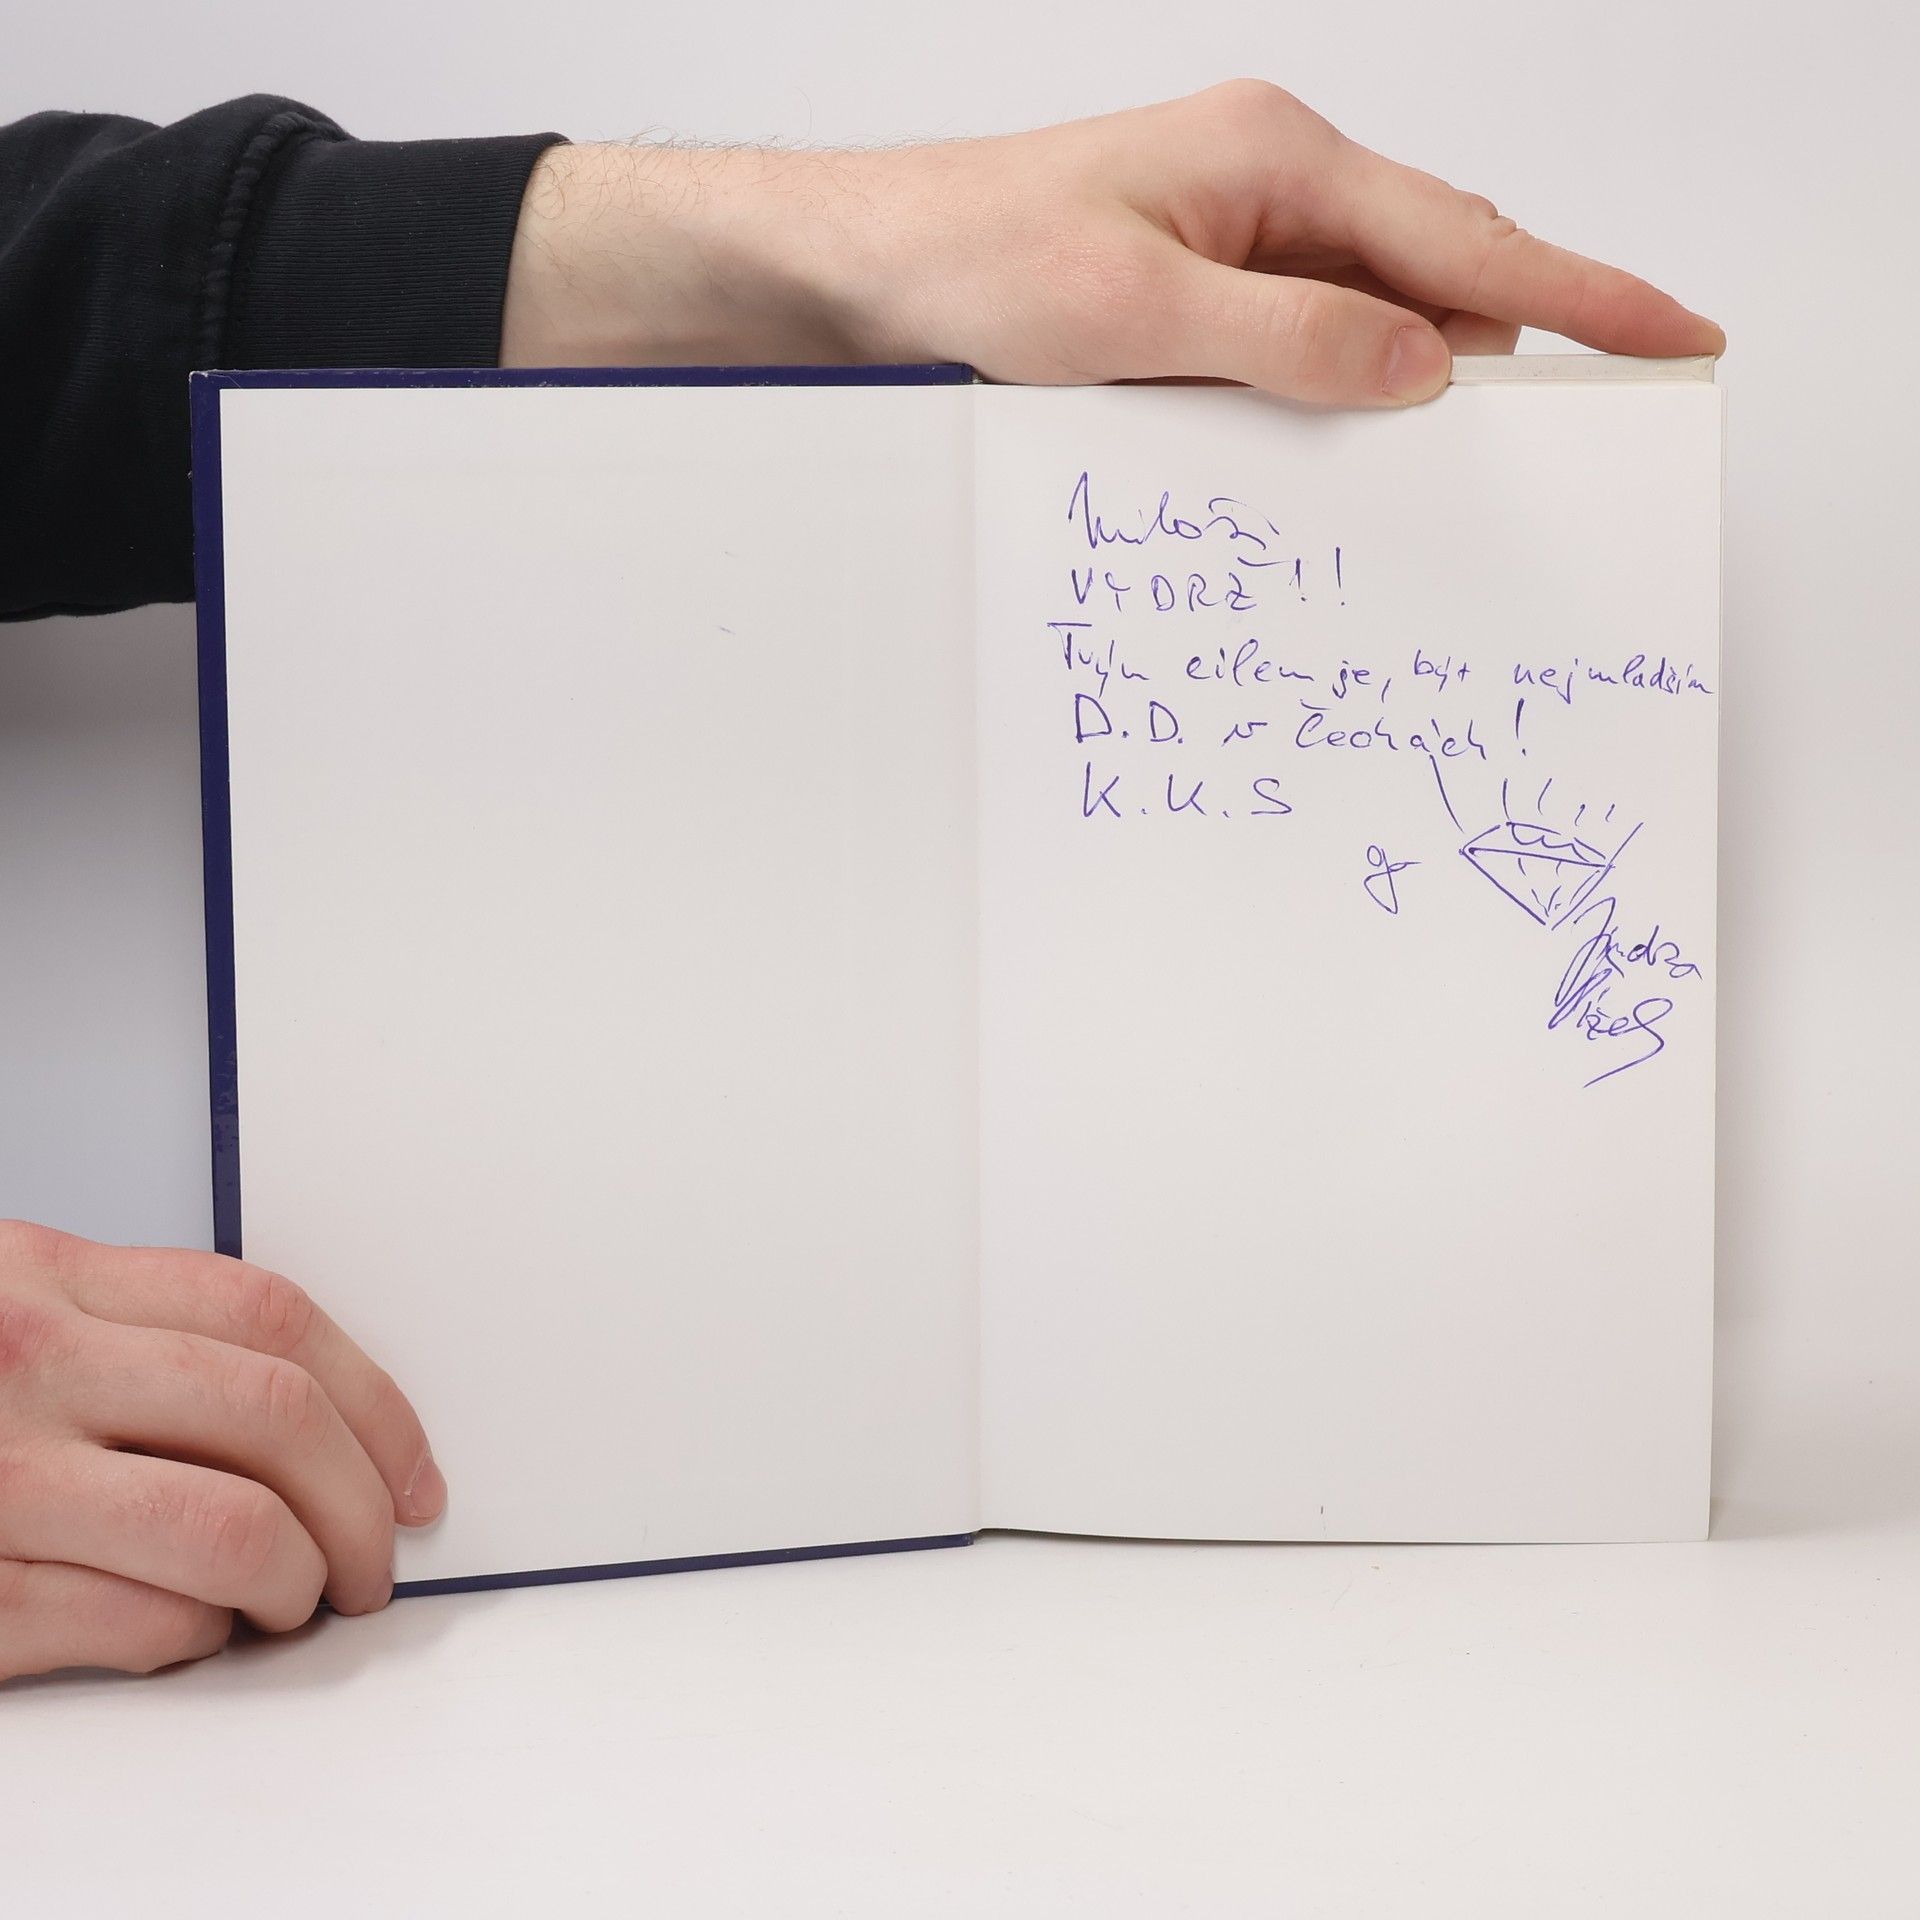 Miloši
VYDRŽ!!
Tvým cílem je, být nejmladším
D.D. v Čechách!
K.K.S
go
Jindra